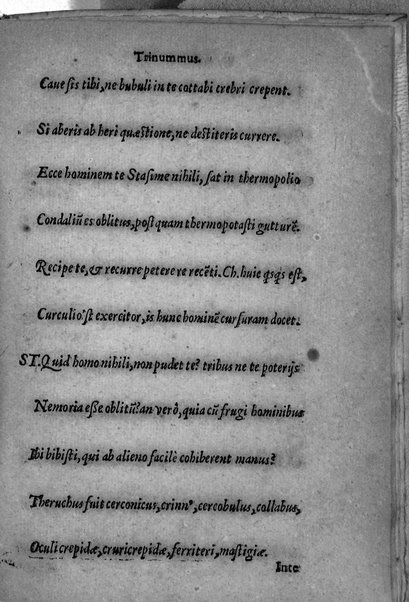 Trinummus.
Caue sis tibi, ne bubuli in te cottabi crebri crepent.
Si aberis ab heri quæstione, ne destiteris currere.
Ecce hominem te Stasime nihili, sat in thermopolio
Condaliũ es oblitus, post quam thermopotasti gutturẽ.
Recipe te, & recurre petere re recẽti. Ch. huic q̃sq̃s est,
Curculio'st exercitor, is hunc hominẽ cursuram docet.
ST. Quid homo nihili, non pudet te? tribus ne te poterijs
Memoria esse oblitũ? an verò, quia cũ frugi hominibus
Ibi bibisti, qui ab alieno facilè cohiberent manus?
Theruchus fuit cerconicus, crinnꝰ, cercobulus, collabus,
Oculicrepidæ, cruricrepidæ, ferriteri, mastigiæ.
Inte